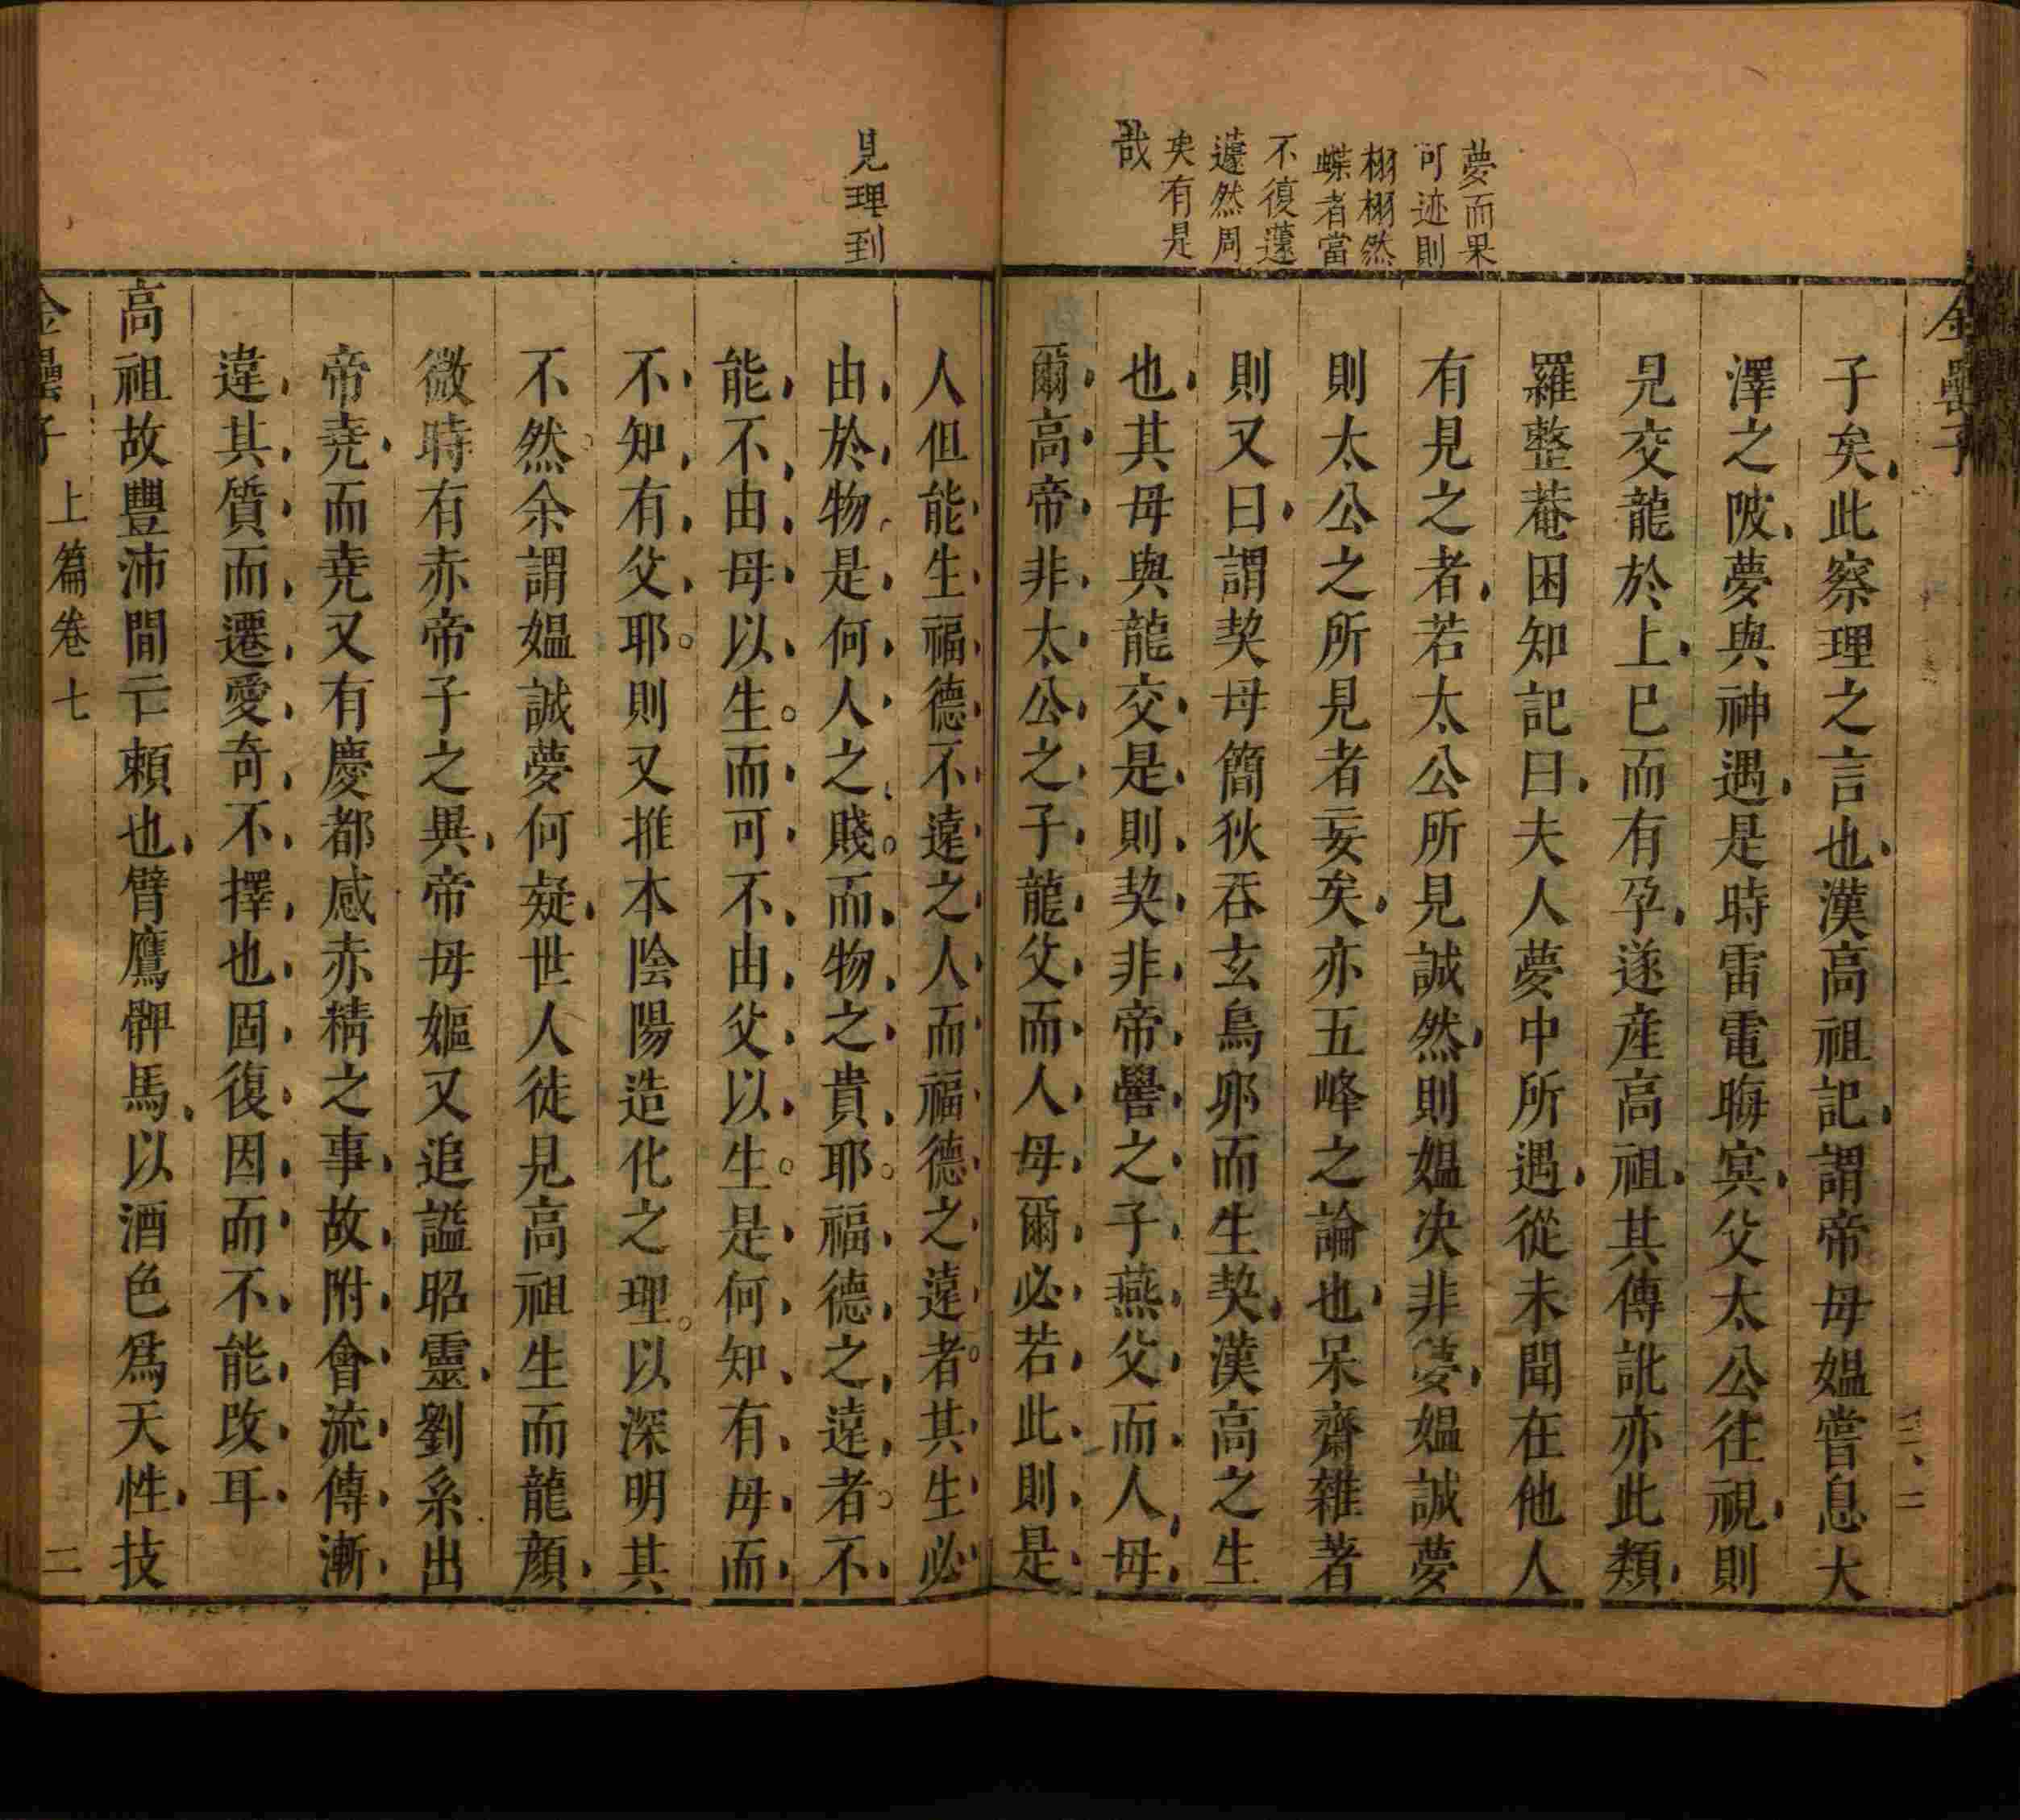 金罍子
夢而果
可迹則
栩栩然
蝶者當
不復蘧
蘧然周
矣有是
哉
子矣此察理之言也漢高祖記謂帝母媼嘗息大
澤之陂夢與神遇是時雷電晦㝠父太公往視則
見交龍於上巳而有孕遂産高祖其傳訛亦此類
羅整菴困知記曰夫人夢中所遇從未聞在他人
有見之者若太公所見誠然則媼决非夢媼誠夢
則太公之所見者妄矣亦五峰之論也呆齋雜著
則又曰謂契母簡狄吞玄鳥卵而生契漢高之生
也其母與龍交是則契非帝嚳之子燕父而人母
爾高帝非太公之子龍父而人母爾必若此則是
見理到
人但能生福德不遠之人而福德之遠者其生必
由於物是何人之賤而物之貴耶福德之遠者不
能不由母以生而可不由父以生是何知有母而
不知有父耶則又推本陰陽造化之理以深明其
不然余謂媼誠夢何疑世人徒見高祖生而龍顔
微時有赤帝子之異帝母嫗又追謚昭靈劉系出
帝堯而堯又有慶都感赤精之事故附會流傳漸
違其質而遷愛奇不擇也固復因而不能改耳
高祖故豐沛間亡頼也臂鷹髀馬以酒色爲天性技
金罍子 上篇卷七 二